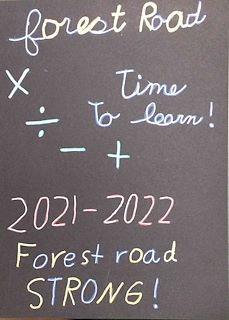 forest Road
× Time
÷ To learn!
− +
2021-2022
Forest road
STRONG!